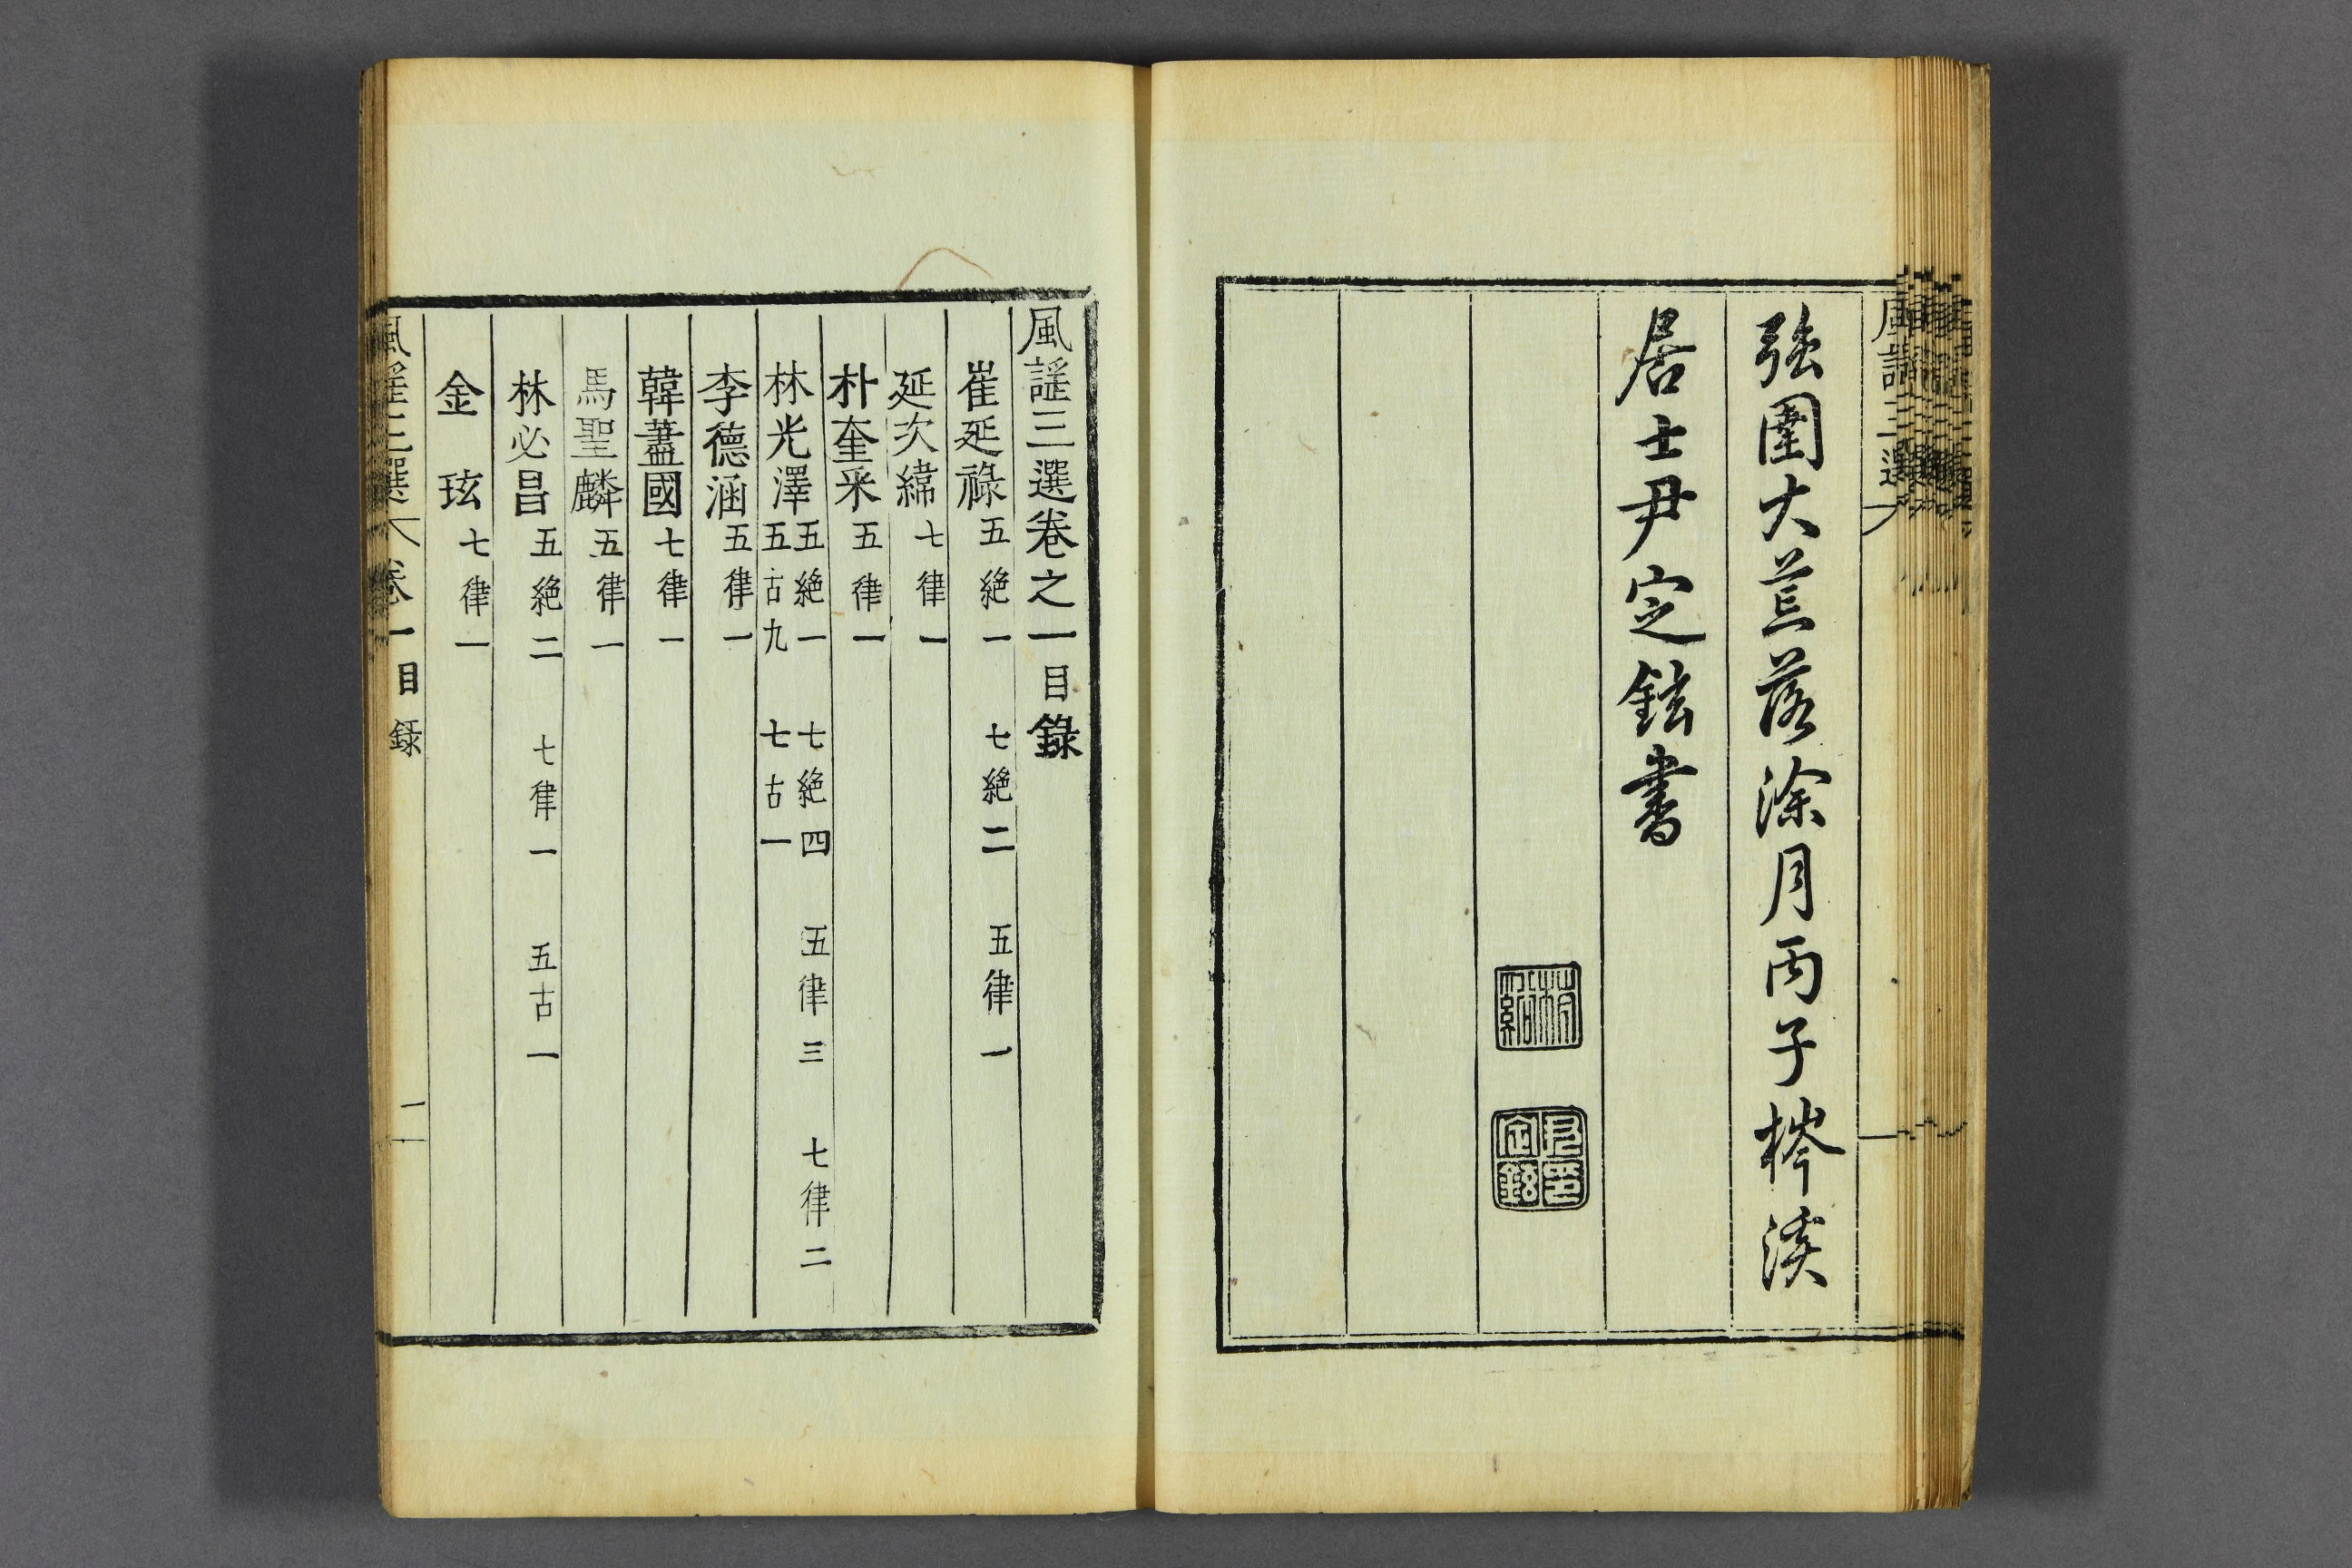 強圉大荒落涂月丙子梣溪
居士尹定鉉書
尹定鉉印
風謠三選卷之一目錄
崔延祿 五絶一 七絶二 五律一
延次緯 七律一
朴奎采 五律一
林光澤 五絶一 七絶四 五律三 七律二
五古九 七古一
李德涵 五律一
韓藎國 七律一
馬聖麟 五律一
林必昌 五絶二 七律一 五古一
金玹 七律一
風謠三選 卷一目錄 一